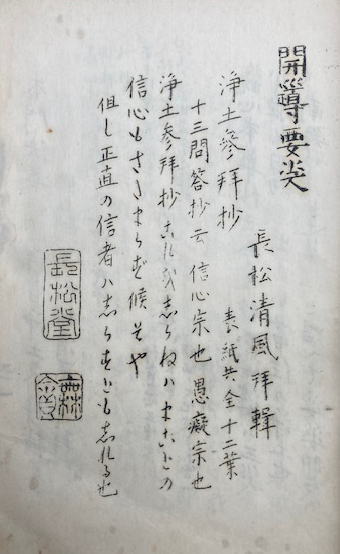 開導要
長松清風拜輯
浄土參拜抄 表紙共全十二葉
十三問答抄云 信心宗也 愚癡宗也
浄土参拜抄 これを志らねハまことの
信心もさたまらず候そや
但し正直の信者ハ志らすとも志れる也
長松堂